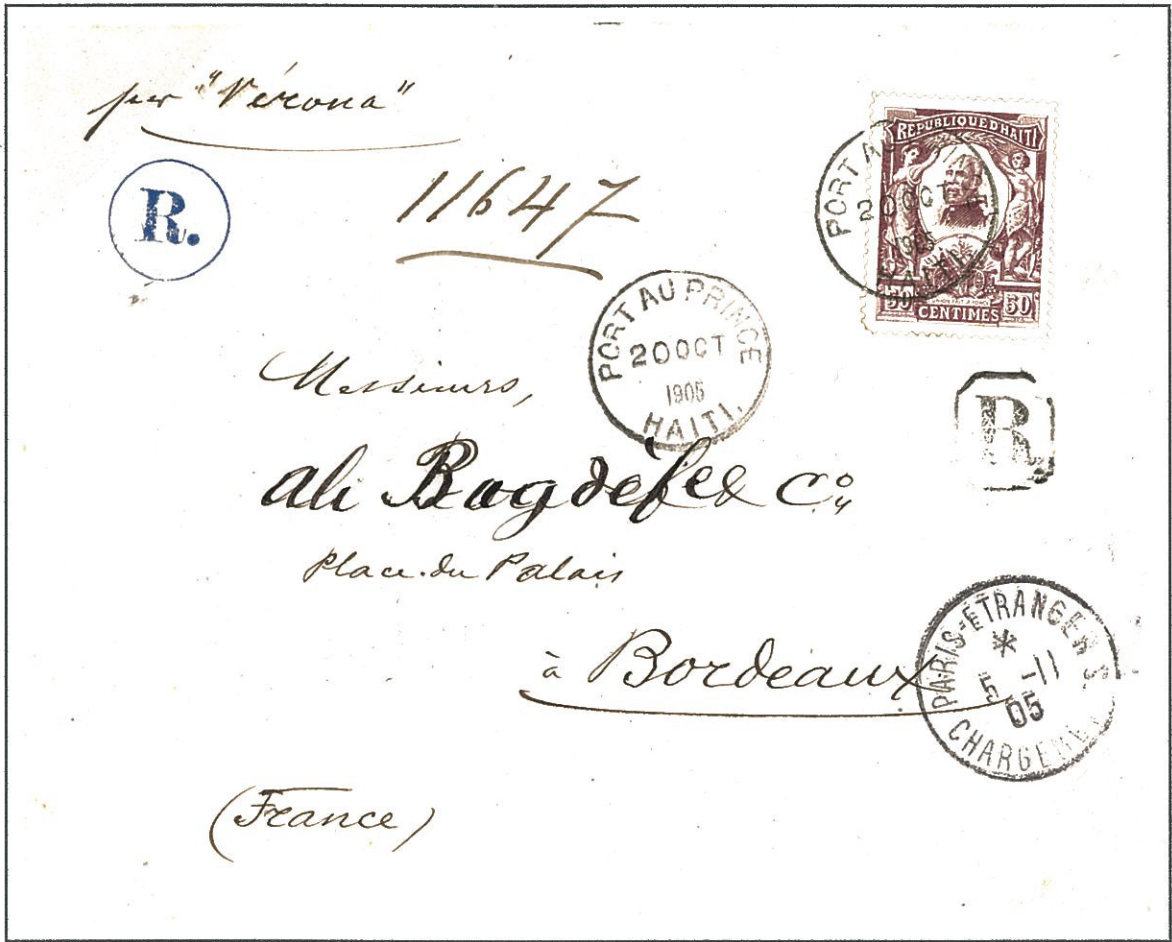 per "Vérona"
R.
11647
REPUBLIQUE D'HAITI
50 CENTIMES 50
PORT AU
20 OCT
1905
HAITI
PORT AU PRINCE
20 OCT
1905
HAITI.
R
Messieurs,
Ali Bagdèfe & Co,
Place du Palais
à Bordeaux
(France)
PARIS-ETRANGER
5 -11
05
CHARGEME